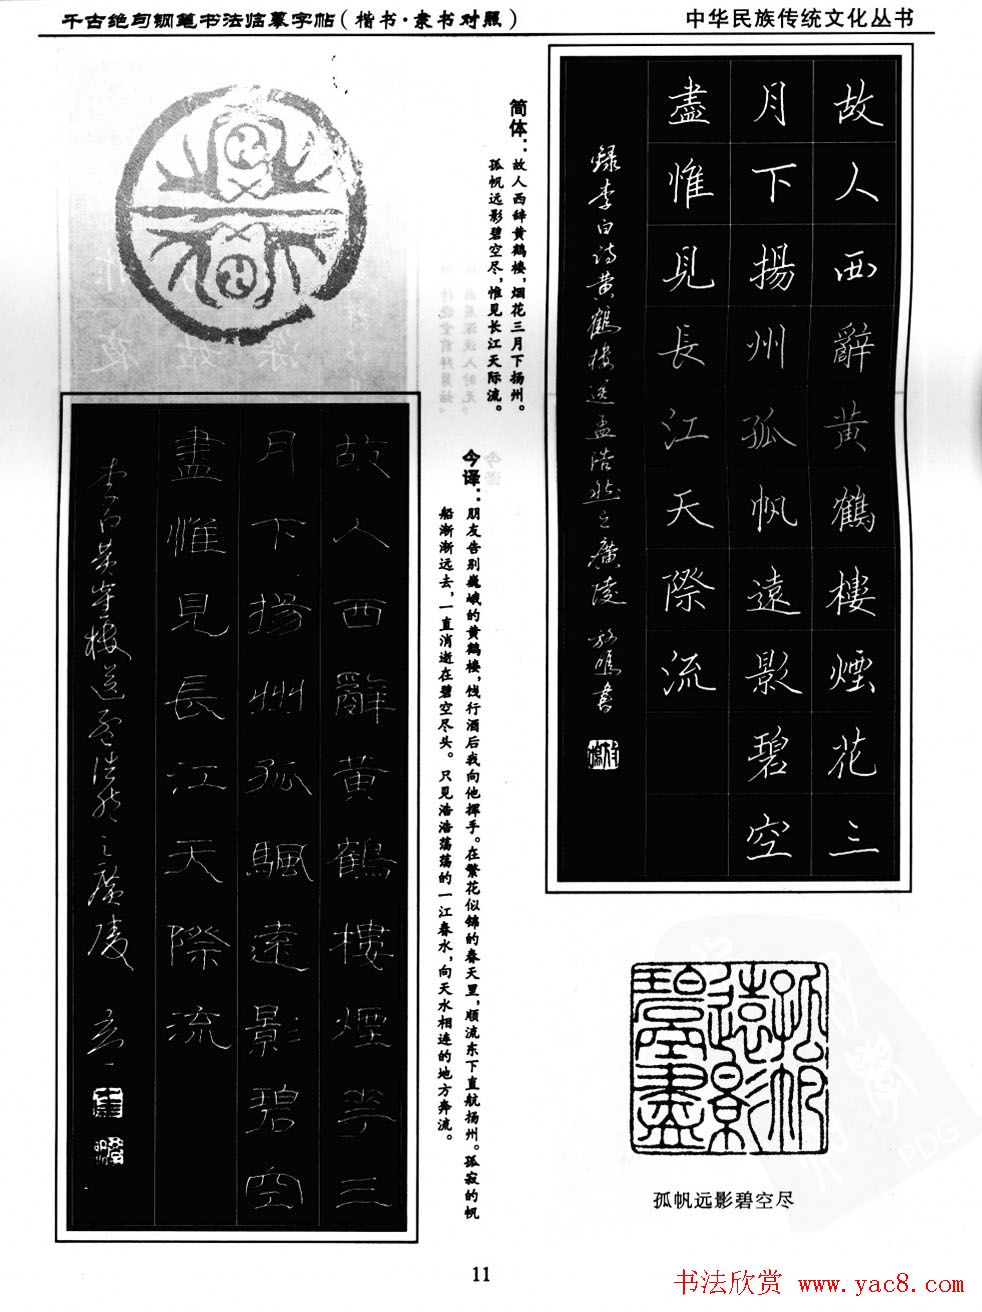 千古绝句钢笔书法临摹字帖(楷书·隶书对照)
中华民族传统文化丛书
故人西辭黄鶴樓煙花三
月下揚州孤帆遠影碧空
盡惟見長江天際流
録李白詩黄鶴樓送孟浩然之廣陵
简体：故人西辞黄鹤楼，烟花三月下扬州。
孤帆远影碧空尽，惟见长江天际流。
今译：朋友告别巍峨的黄鹤楼，饯行酒后我向他挥手。在繁花似锦的春天里，顺流东下直航扬州。孤寂的帆
船渐渐远去，一直消逝在碧空尽头。只见浩浩荡荡的一江春水，向天水相连的地方奔流。
故人西辭黄鶴樓煙華三
月下揚州孤颿遠影碧空
盡惟見長江天際流
李白黄鶴樓送孟浩然之廣陵
孤帆
遠影
碧空盡
孤帆远影碧空尽
11
书法欣赏 www.yac8.com
PDG